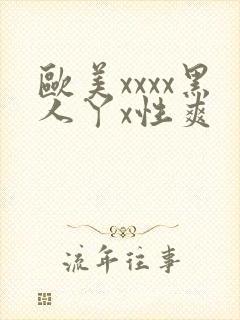 歐美xxxx黑
人丫x性爽
流年往事